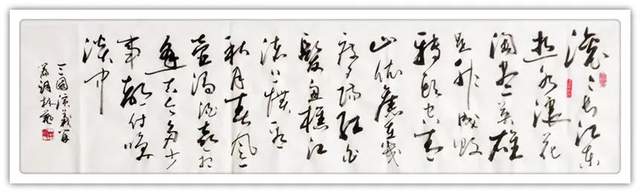 滚滚长江东
逝水浪花
淘尽英雄
是非成败
转头空青
山依旧在几
度夕阳红白
发渔樵江
渚上惯看
秋月春风一
壶浊酒喜相
逢古今多少
事都付笑
谈中
三國演義